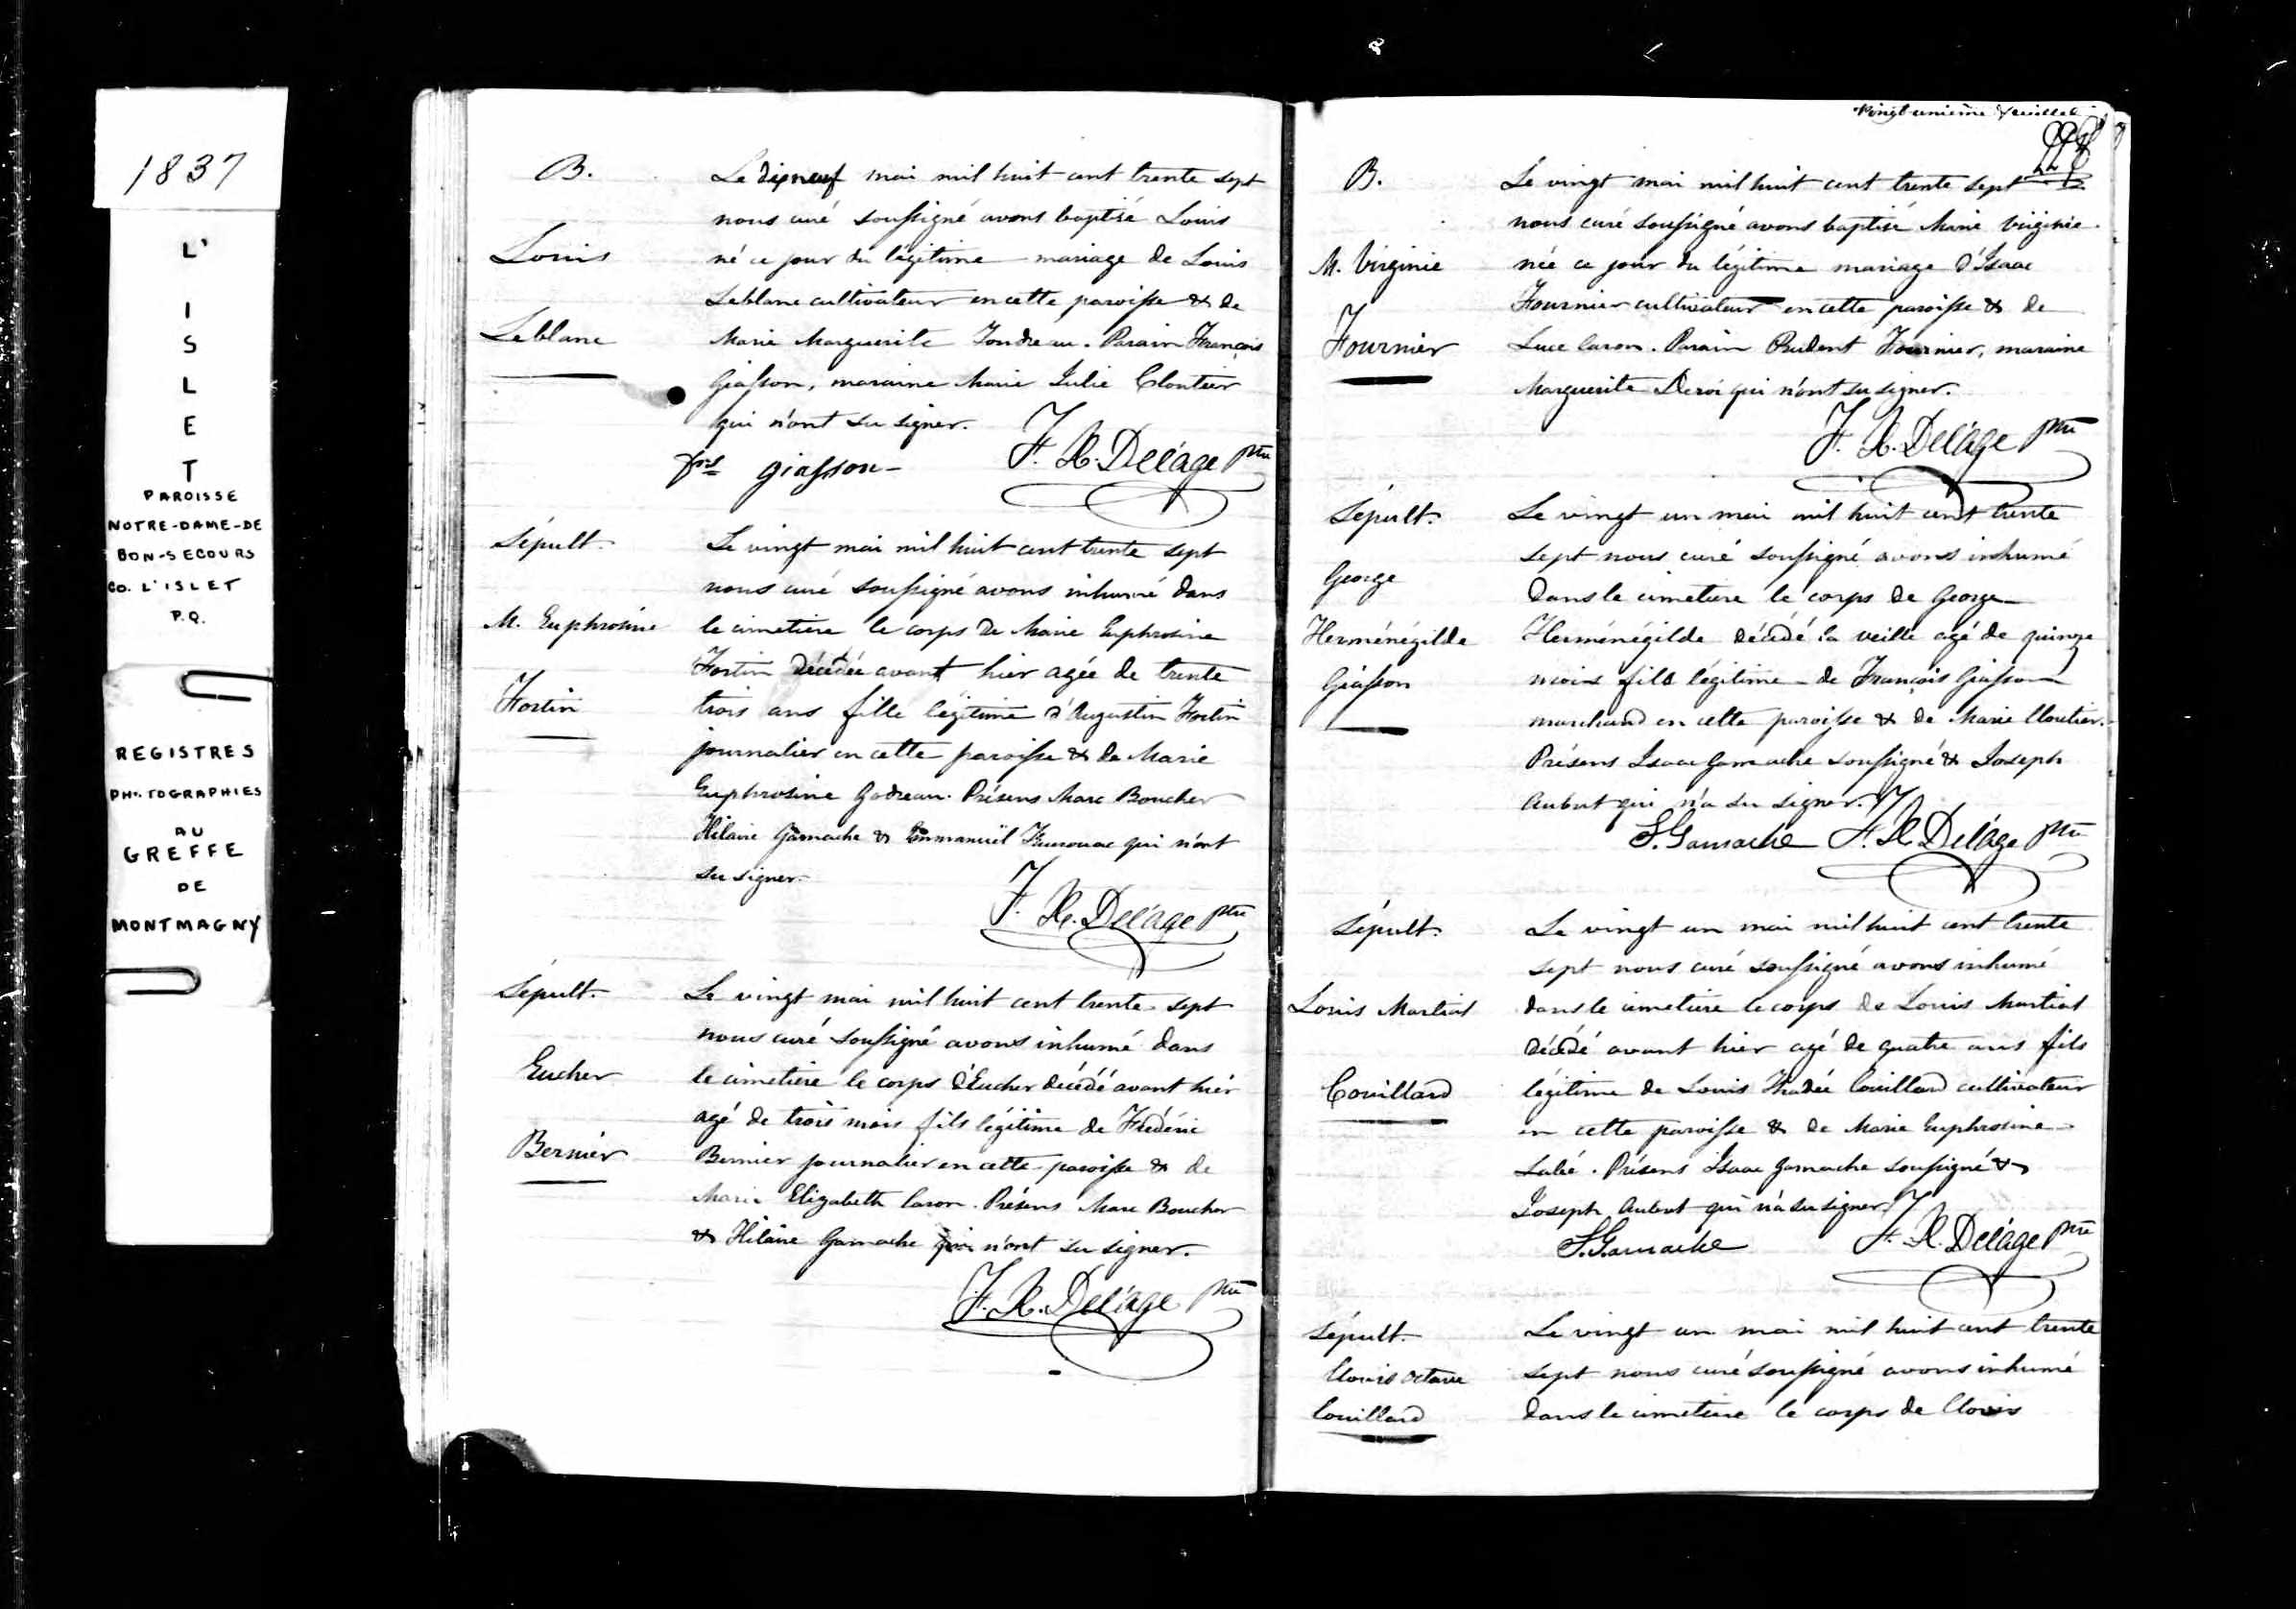 1837
L'
I
S
L
E
T
PAROISSE
NOTRE-DAME-DE
BON-SECOURS
CO. L'ISLET
P.Q.
REGISTRES
PHOTOGRAPHIES
AU
GREFFE
DE
MONTMAGNY
B.
Louis
Leblanc
Le dixneuf mai mil huit cent trente sept
nous curé soussigné avons baptisé Louis
né ce jour du légitime mariage de Louis
Leblanc cultivateur en cette paroisse & de
Marie Marguerite Tondreau. Parain François
Giasson, maraine Marie Julie Cloutier
qui n'ont su signer.
frs giasson F. R. Delâge ptre
Sépult.
M. Euphrosine
Fortin
Le vingt mai mil huit cent trente sept
nous curé soussigné avons inhumé dans
le cimetiere le corps de Marie Euphrosine
Fortin décédée avant hier agée de trente
trois ans fille légitime d'Augustin Fortin
journalier en cette paroisse & de Marie
Euphrosine Godreau. Présens Marc Boucher
Hilaire Gamache & Emmanuël qui n'ont
su signer.
F. R. Delâge ptre
Sépult.
Eucher
Bernier
Le vingt mai mil huit cent trente sept
nous curé soussigné avons inhumé dans
le cimetiere le corps d'Eucher décédé avant hier
agé de trois mois fils légitime de Frédéric
Bernier journalier en cette paroisse & de
Marie Elizabeth Caron. Présens Marc Boucher
& Hilaire Gamache qui n'ont su signer.
F. R. Delâge ptre
Vingt-unieme feuillet
B.
M. Virginie
Fournier
Le vingt mai mil huit cent trente sept
nous curé soussigné avons baptisé Marie Virginie
née ce jour du légitime mariage d'Isaac
Fournier cultivateur en cette paroisse & de
Luce Caron. Parain Prudent Fournier, maraine
Marguerite Deroi qui n'ont su signer.
F. R. Delâge ptre
Sépult.
George
Herménégilde
Giasson
Le vingt un mai mil huit cent trente
sept nous curé soussigné avons inhumé
dans le cimetiere le corps de George
Herménégilde décédé la veille agé de quinze
mois fils légitime de François Giasson
marchand en cette paroisse & de Marie Cloutier.
Présens Isaac Gamache soussigné & Joseph
Aubut qui n'a su signer.
I. Gamache F. R. Delâge ptre
Sépult.
Louis Martial
Couillard
Le vingt un mai mil huit cent trente
sept nous curé soussigné avons inhumé
dans le cimetiere le corps de Louis Martial
décédé avant hier agé de quatre ans fils
légitime de Louis Thadée Couillard cultivateur
en cette paroisse & de Marie Euphrosine
Présens Isaac Gamache soussigné &
Joseph Aubut qui n'a su signer.
I. Gamache F. R. Delâge ptre
Sépult.
Clovis Octave
Couillard
Le vingt un mai mil huit cent trente
sept nous curé soussigné avons inhumé
dans le cimetiere le corps de Clovis